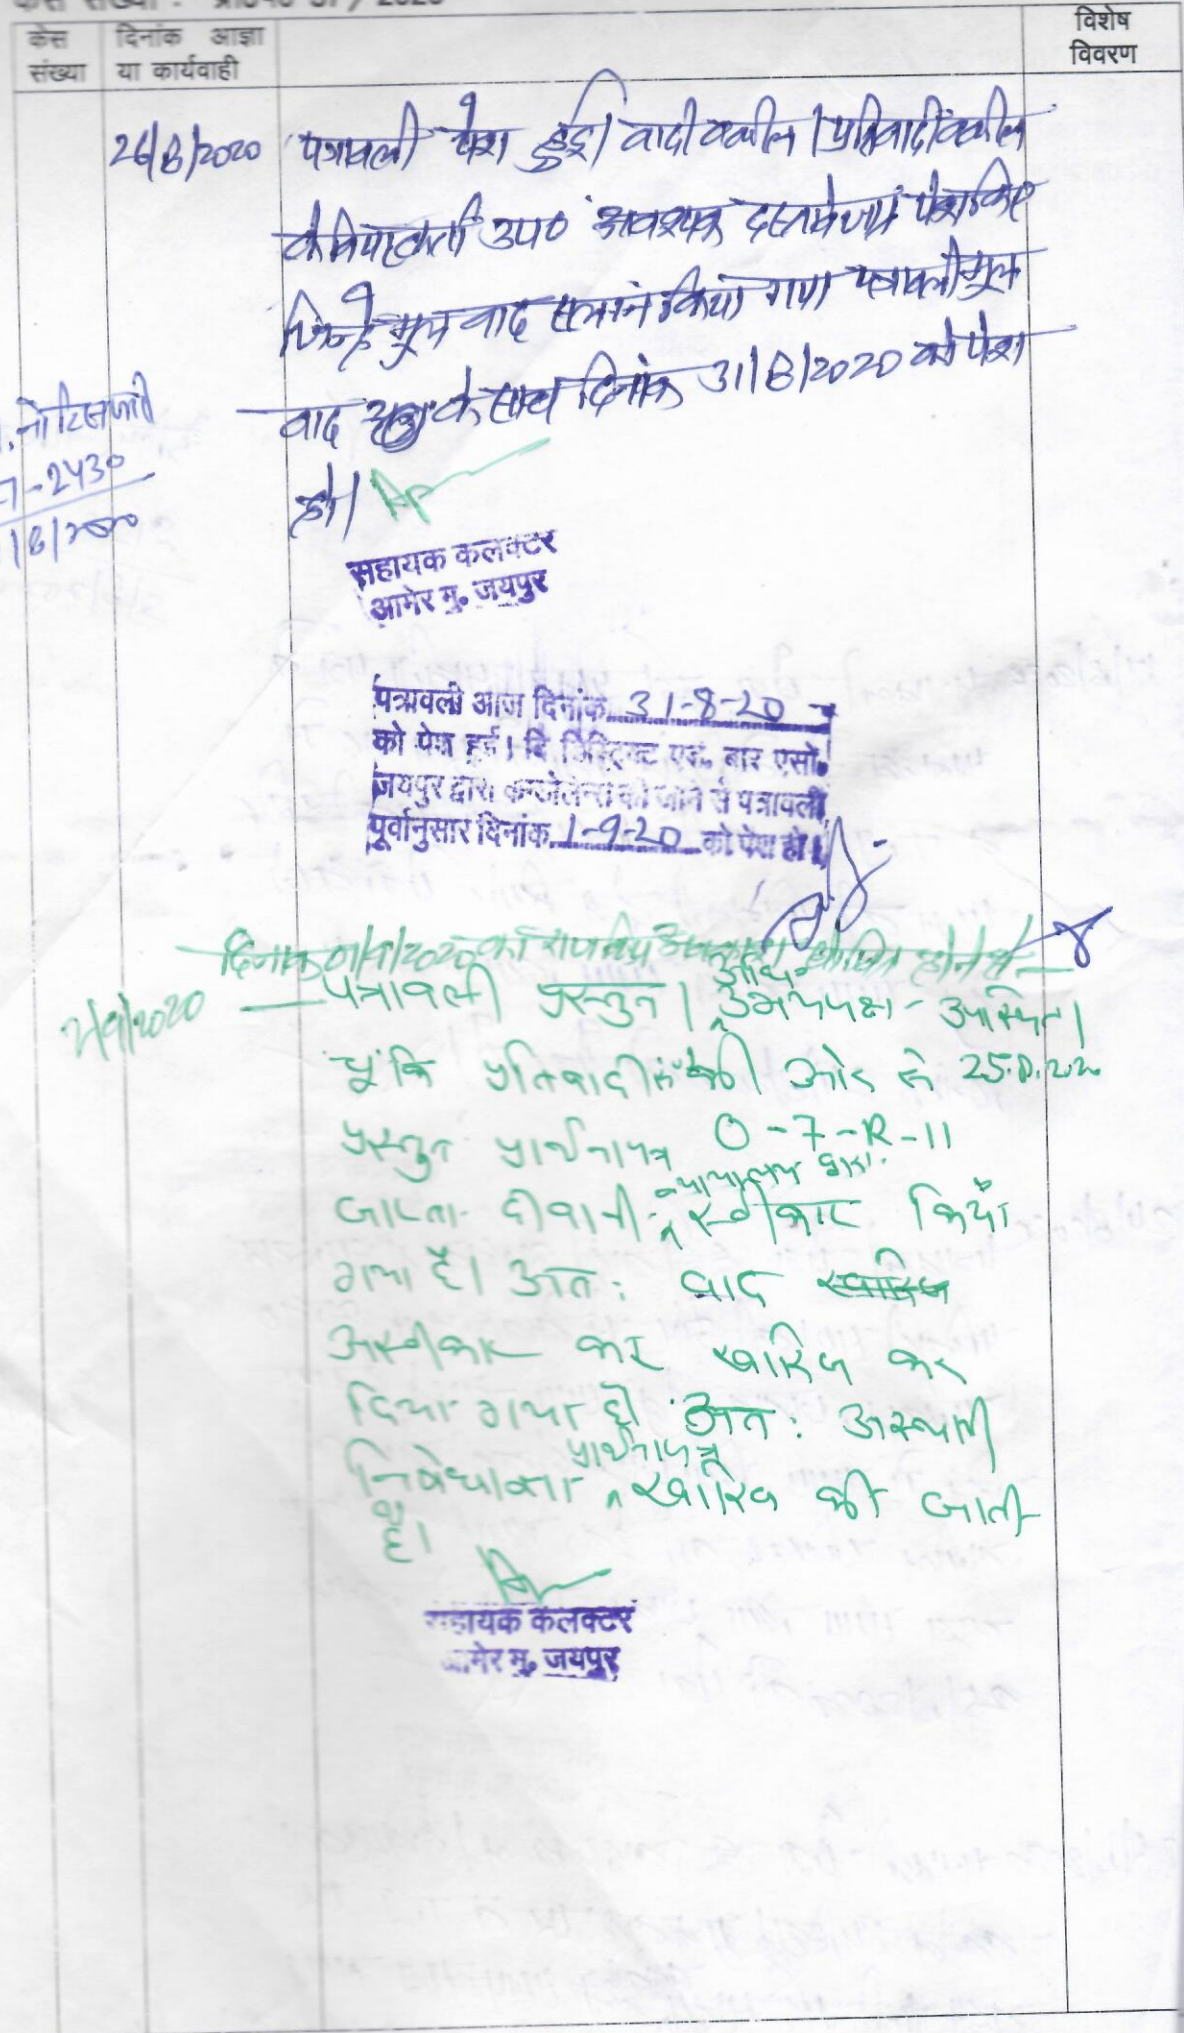 केस संख्या : प्रा0प0
केस संख्या
दिनांक आज्ञा या कार्यवाही
विशेष विवरण
26/8/2020 पत्रावली पेश हुई। वादी वकील। प्रतिवादी वकील
उप0 आवश्यक दस्तावेजात पेश किए
जिन्हे मूल वाद किया गया पत्रावली मूल
वाद के साथ दिनांक 31/8/2020 को पेश
हो।
नोटिस जारी
2430
/8/2020
सहायक कलक्टर
आमेर मु. जयपुर
पत्रावली आज दिनांक 31-8-20
को पेश हुई। दि डिस्ट्रिक्ट एड. बार एसो.
जयपुर द्वारा कन्डोलेन्स की जाने से पत्रावली
पूर्वानुसार दिनांक 1-9-20 को पेश हो।
दिनांक 01/9/2020 को राजकीय अवकाश घोषित होने से
2/9/2020 पत्रावली प्रस्तुत। अधि. उभयपक्ष उपस्थित।
चूंकि प्रतिवादी की ओर से 25.8.2020
प्रस्तुत प्रार्थनापत्र O-7-R-11
जाप्ता दीवानी न्यायालय द्वारा स्वीकार किया
गया है। अत: वाद खारिज
अस्वीकार कर खारिज कर
दिया गया है अत: अस्थायी
निषेधाज्ञा प्रार्थनापत्र खारिज की जाती
है।
सहायक कलक्टर
आमेर मु. जयपुर